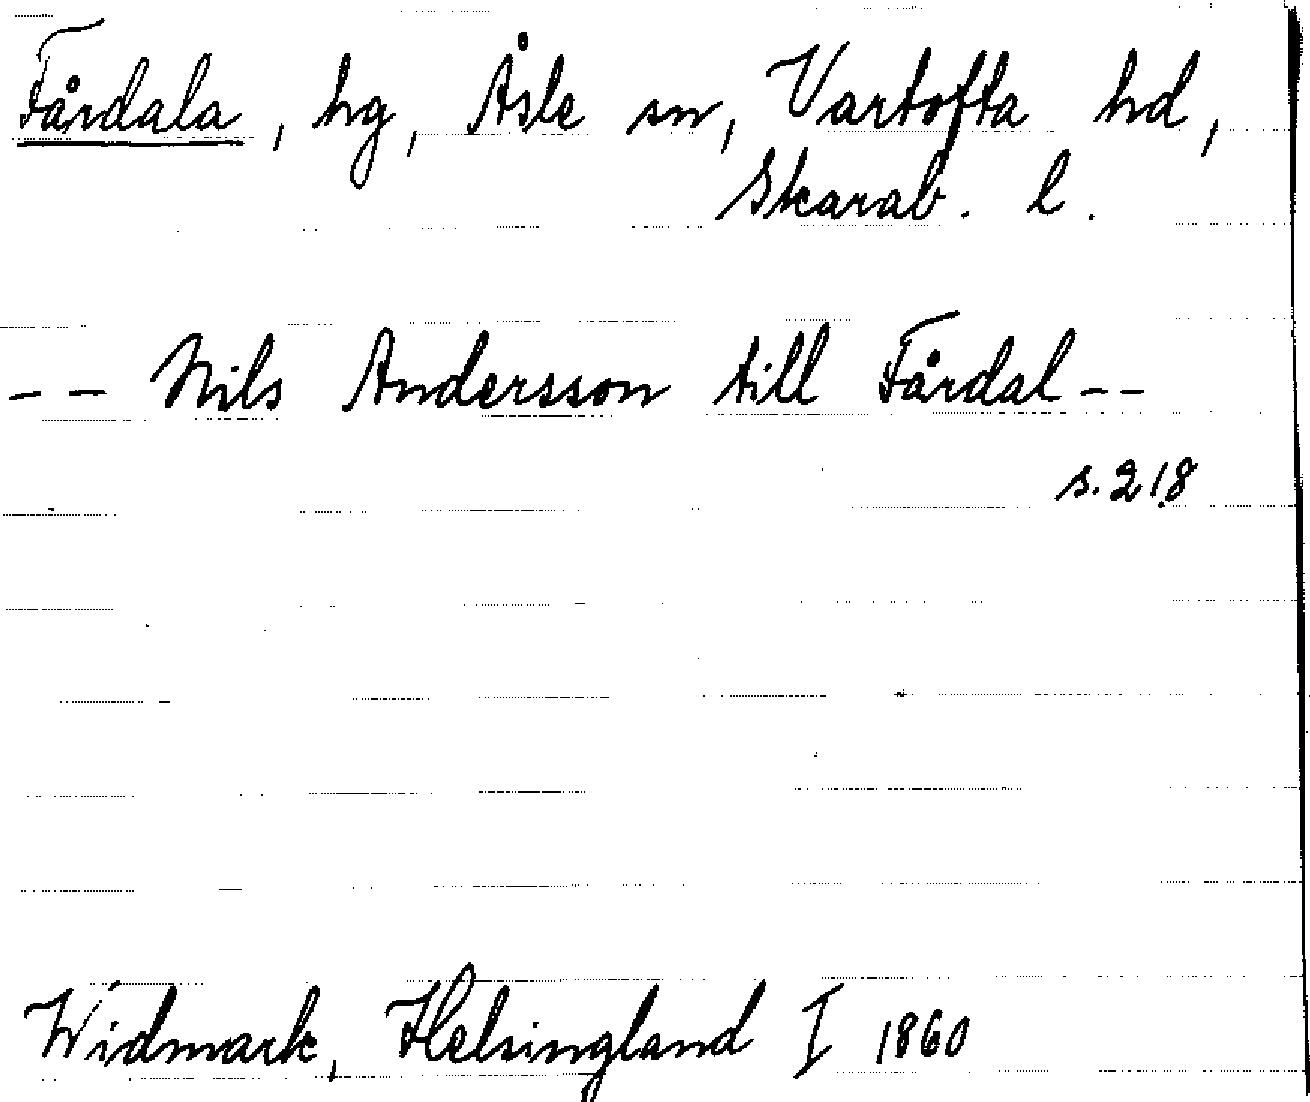 Fårdala, hg, Åsle sn, Vartofta hd,
Skarab. l.
-- Nils Andersson till Fårdal--
s. 218
Widmark, Helsingland I 1860